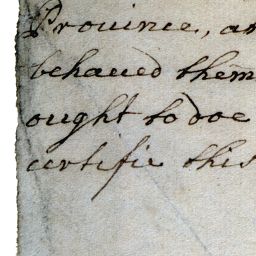 Prouince, an
behaued them
ought to doe
certifie this